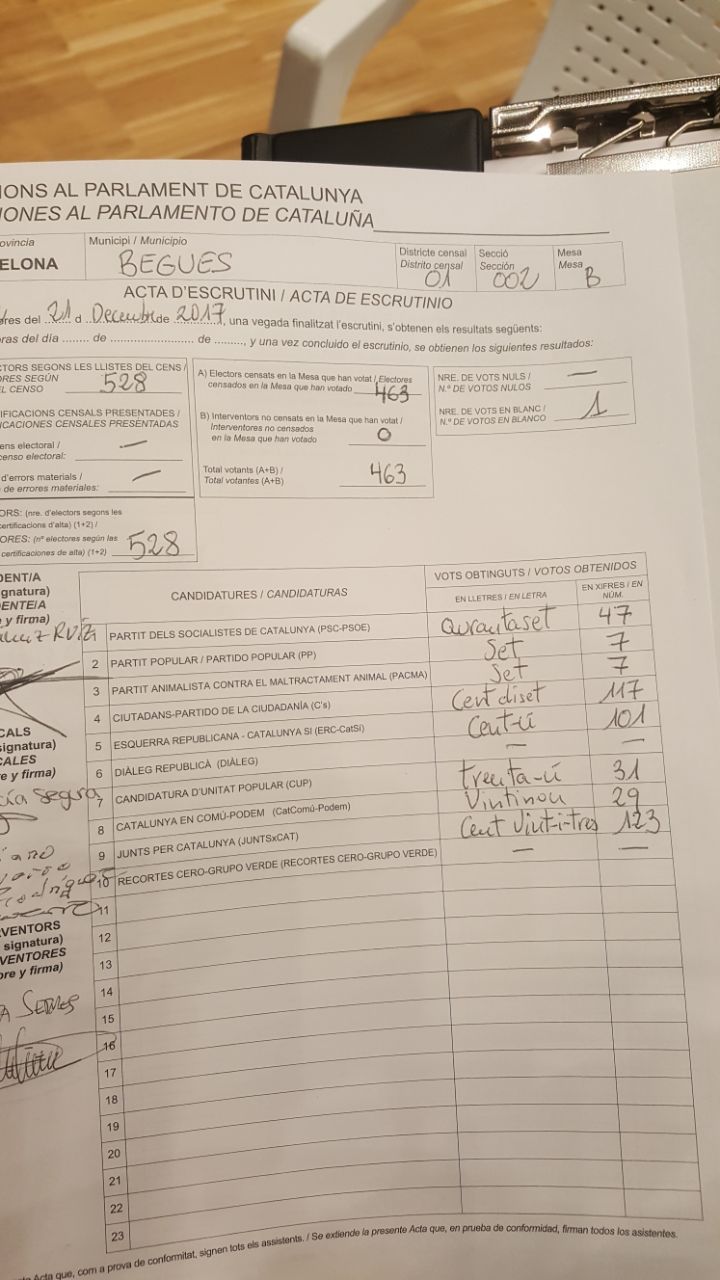 IONS AL PARLAMENT DE CATALUNYA
IONES AL PARLAMENTO DE CATALUÑA
ovincia
ELONA
Municipi / Municipio
BEGUES
Districte censal
Distrito censal
01
Secció
Sección
002
Mesa
Mesa
B
ACTA D'ESCRUTINI / ACTA DE ESCRUTINIO
res del 21 d Decembre de 2017, una vegada finalitzat l'escrutini, s'obtenen els resultats següents:
oras del día ........ de .................................. de ........., y una vez concluido el escrutinio, se obtienen los siguientes resultados:
CTORS SEGONS LES LLISTES DEL CENS /
ORES SEGÚN
L CENSO 528
IFICACIONS CENSALS PRESENTADES /
ICACIONES CENSALES PRESENTADAS
ens electoral /
censo electoral: —
d'errors materials /
de errores materiales: —
ORS: (nre. d'electors segons les
certificacions d'alta) (1+2) /
ORES: (nº electores según las
certificaciones de alta) (1+2) 528
A) Electors censats en la Mesa que han votat / Electores
censados en la Mesa que han votado 463
B) Interventors no censats en la Mesa que han votat /
Interventores no censados
en la Mesa que han votado 0
Total votants (A+B) /
Total votantes (A+B) 463
NRE. DE VOTS NULS /
N.º DE VOTOS NULOS —
NRE. DE VOTS EN BLANC /
N.º DE VOTOS EN BLANCO 1
DENT/A
gnatura)
ENTE/A
y firma)
CALS
signatura)
CALES
re y firma)
cía Segura
RVENTORS
signatura)
VENTORES
bre y firma)
CANDIDATURES / CANDIDATURAS
VOTS OBTINGUTS / VOTOS OBTENIDOS
EN LLETRES / EN LETRA
EN XIFRES / EN
NÚM.
1 PARTIT DELS SOCIALISTES DE CATALUNYA (PSC-PSOE) Qurantaset 47
2 PARTIT POPULAR / PARTIDO POPULAR (PP) Set 7
3 PARTIT ANIMALISTA CONTRA EL MALTRACTAMENT ANIMAL (PACMA) Set 7
4 CIUTADANS-PARTIDO DE LA CIUDADANÍA (C's) Cent diset 117
5 ESQUERRA REPUBLICANA - CATALUNYA SÍ (ERC-CatSí) Cent-ú 101
6 DIÀLEG REPUBLICÀ (DIÀLEG) — —
7 CANDIDATURA D'UNITAT POPULAR (CUP) trenta-ú 31
8 CATALUNYA EN COMÚ-PODEM (CatComú-Podem) Vintinou 29
9 JUNTS PER CATALUNYA (JUNTSxCAT) Cent Vint-i-tres 123
10 RECORTES CERO-GRUPO VERDE (RECORTES CERO-GRUPO VERDE) — —
11
12
13
14
15
16
17
18
19
20
21
22
23
Acta que, com a prova de conformitat, signen tots els assistents. / Se extiende la presente Acta que, en prueba de conformidad, firman todos los asistentes.